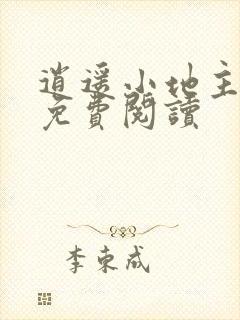 逍遥小地主
免費閱讀
李東咸